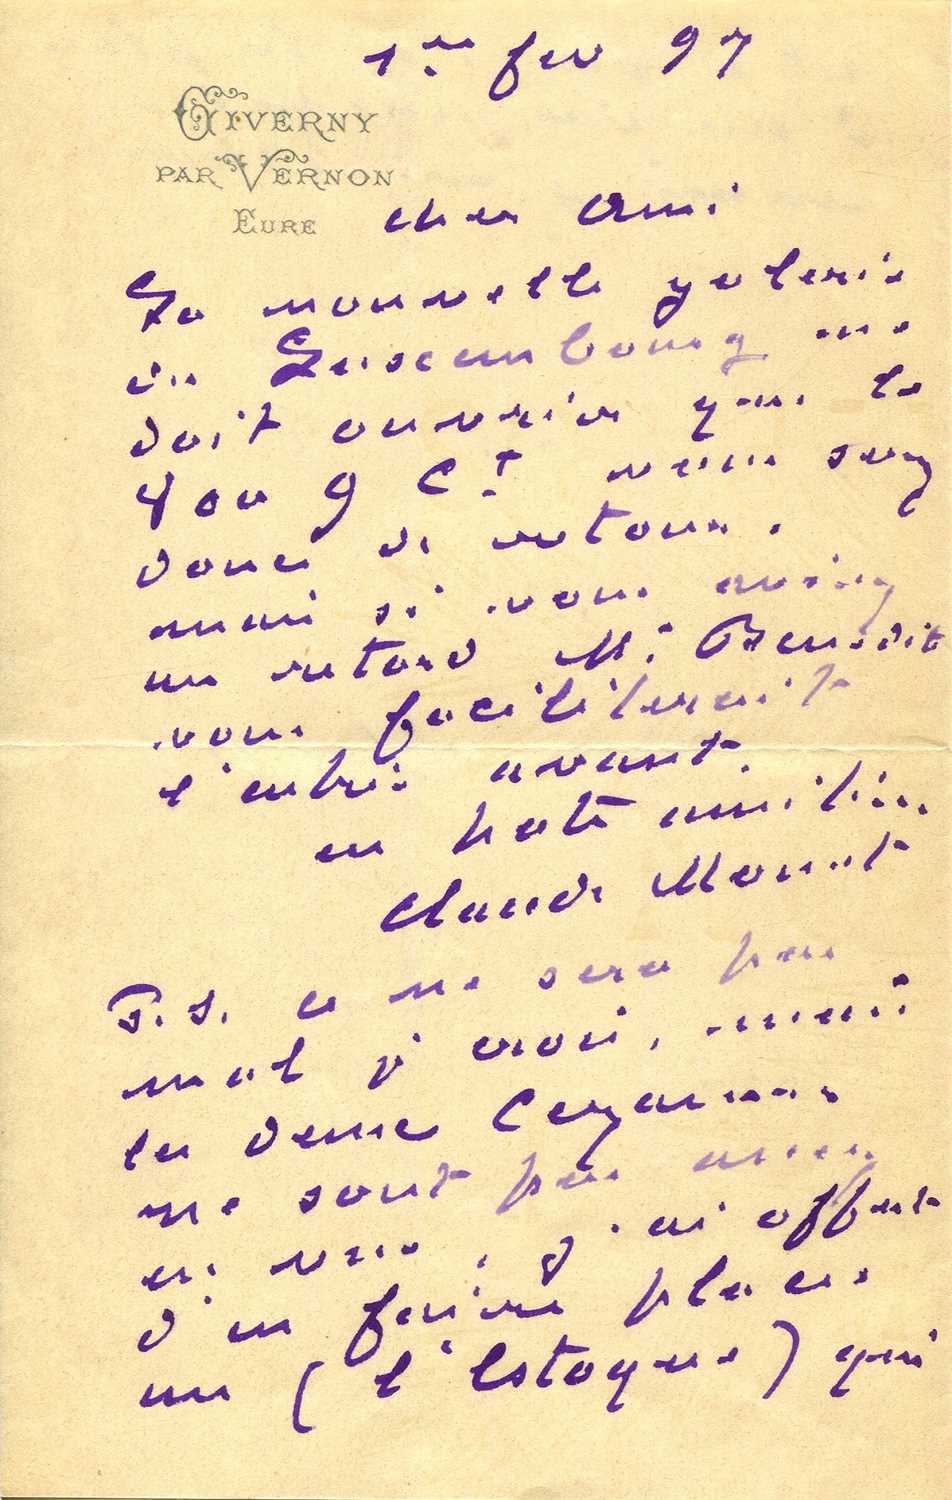 1er fev 97
GIVERNY
PAR VERNON
EURE
cher ami
La nouvelle galerie
du Luxembourg ne
doit ouvrir que le
8 ou 9 Ct. vous serez
donc de retour.
mais si vous aviez
un retard Mr. Benedite
vous faciliterait
l'entrée avant.
en hate amitiés
Claude Monet
P.S. ce ne sera pas
mal je crois, mais
les deux Cezannes
ne sont pas assez
en vue, j'ai offert
d'en faire placer
un (l'Estaque) qui